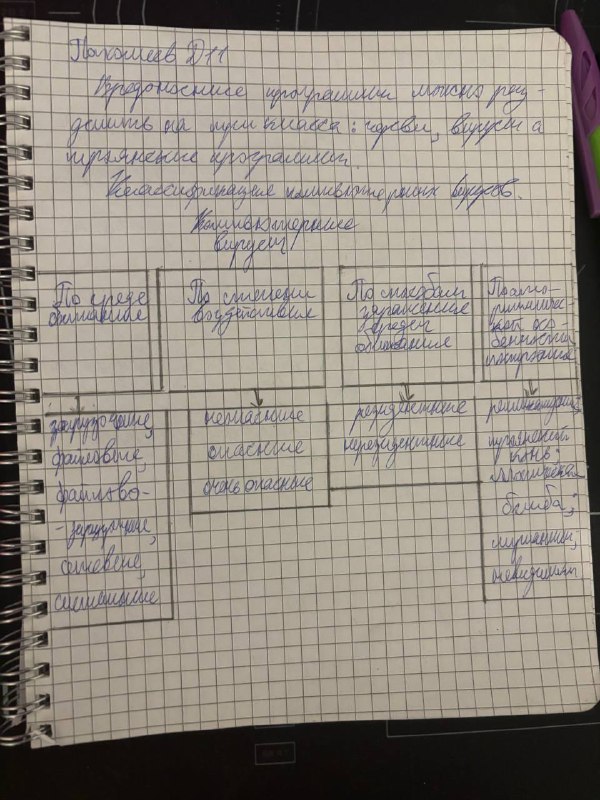 Д11
Вредоносные программы можно раз-
делить на три класса: черви, вирусы и
троянские программы.
Классификация компьютерных вирусов.
Компьютерные
вирусы
По среде
обитания
По степени
воздействия
По способам
заражения
среды
обитания
По алго-
ритмичес-
кой осо-
бенности
построения
загрузочные,
файловые,
файлово-
-загрузочные,
сетевые,
системные
неопасные
опасные
очень опасные
резидентные
нерезидентные
репликаторы;
троянский
конь;
логическая
бомба;
мутанты,
невидимки